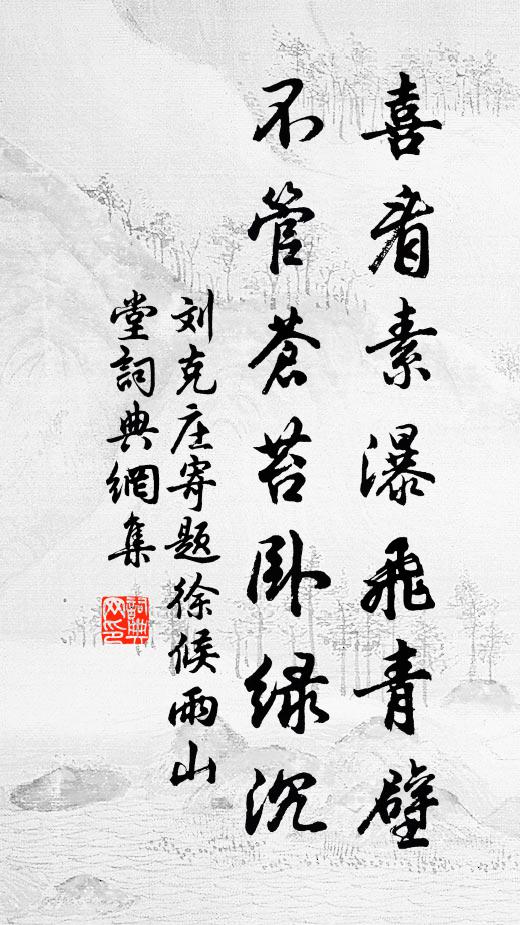 喜看素瀑飛青壁
不管蒼苔臥綠沉
刘克庄寄题徐候雨山
堂詞典網集
詞典